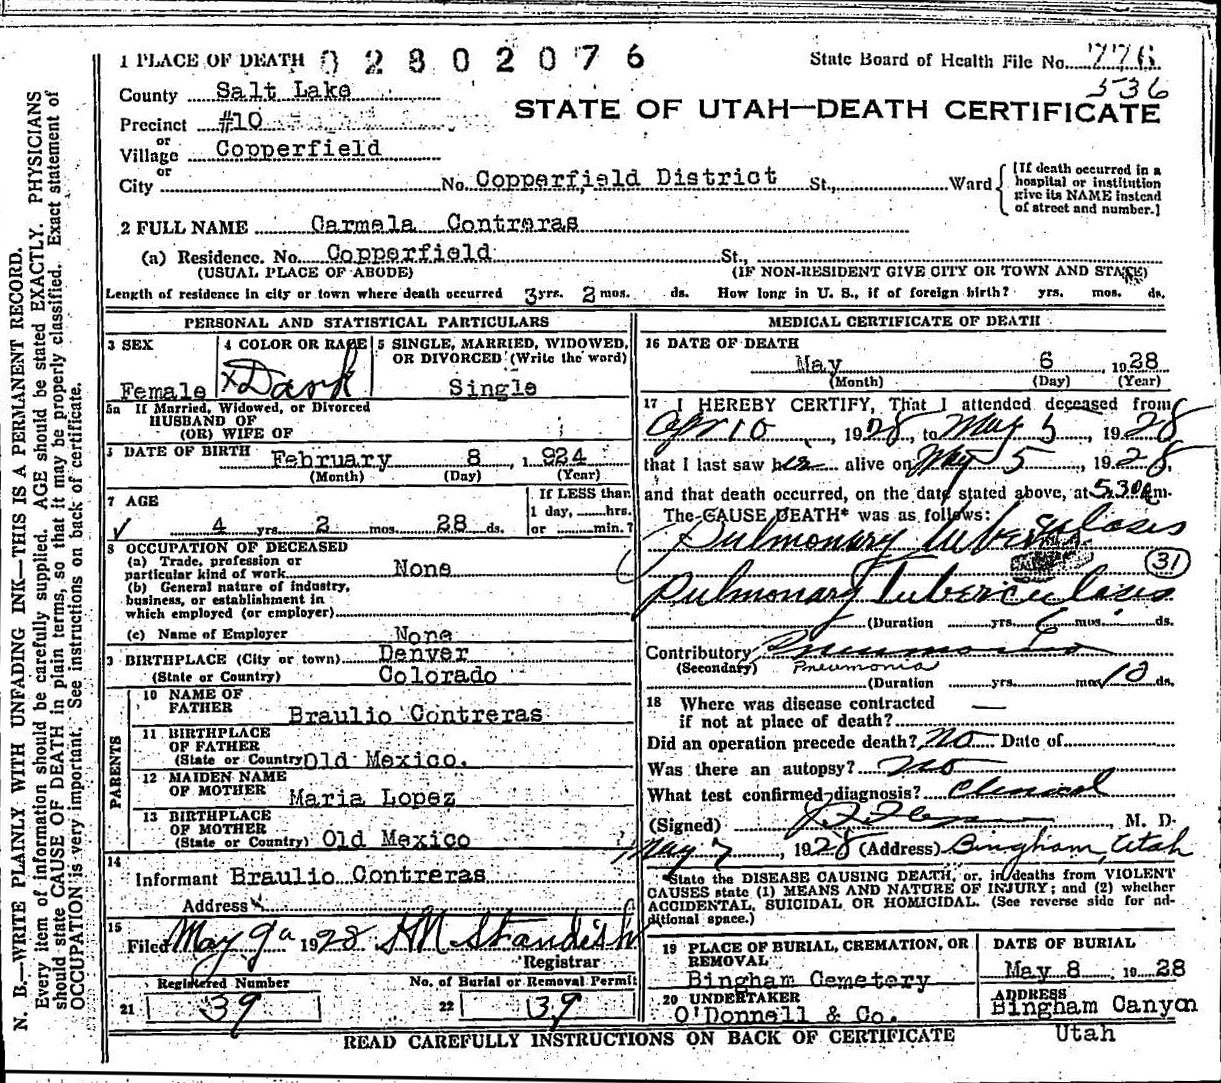 1 PLACE OF DEATH 02802076 State Board of Health File No. 776
536
County Salt Lake
STATE OF UTAH—DEATH CERTIFICATE
Precinct #10
or
Village Copperfield
or
City No. Copperfield District St., Ward
[If death occurred in a
hospital or institution
give its NAME instead
of street and number.]
2 FULL NAME Carmela Contreras
(a) Residence. No. Copperfield St.,
(USUAL PLACE OF ABODE) (IF NON-RESIDENT GIVE CITY OR TOWN AND STATE)
Length of residence in city or town where death occurred 3 yrs. 2 mos. ds. How long in U. S., if of foreign birth? yrs. mos. ds.
PERSONAL AND STATISTICAL PARTICULARS
3 SEX
Female
4 COLOR OR RACE
x Dark
5 SINGLE, MARRIED, WIDOWED,
OR DIVORCED (Write the word)
Single
5a If Married, Widowed, or Divorced
HUSBAND OF
(OR) WIFE OF
DATE OF BIRTH February 8, 1924
(Month) (Day) (Year)
7 AGE
✓ 4 yrs. 2 mos. 28 ds.
If LESS than
1 day, hrs.
or min.?
8 OCCUPATION OF DECEASED
(a) Trade, profession or
particular kind of work None
(b) General nature of industry,
business, or establishment in
which employed (or employer)
(c) Name of Employer None
9 BIRTHPLACE (City or town) Denver
(State or Country) Colorado
PARENTS
10 NAME OF
FATHER Braulio Contreras
11 BIRTHPLACE
OF FATHER
(State or Country) Old Mexico.
12 MAIDEN NAME
OF MOTHER Maria Lopez
13 BIRTHPLACE
OF MOTHER
(State or Country) Old Mexico
14
Informant Braulio Contreras
Address
15
Filed May 9 1928 H M Standish
Registrar
Registered Number
21 39
No. of Burial or Removal Permit
22 39
MEDICAL CERTIFICATE OF DEATH
16 DATE OF DEATH
May 6, 1928
(Month) (Day) (Year)
17 I HEREBY CERTIFY, That I attended deceased from
Apr 10, 1928, to May 5, 1928
that I last saw her alive on May 5, 1928,
and that death occurred, on the date stated above, at 530 am.
The CAUSE DEATH* was as follows:
Pulmonary tuberculosis
31
Pulmonary Tuberculosis
(Duration yrs. 6 mos. ds.
Contributory Pneumonia
(Secondary) Pneumonia
(Duration yrs. mos. 10 ds.
18 Where was disease contracted
if not at place of death? —
Did an operation precede death? No Date of
Was there an autopsy? No
What test confirmed diagnosis? Clinical
(Signed) M. D.
May 7, 1928 (Address) Bingham, Utah
State the DISEASE CAUSING DEATH, or, in deaths from VIOLENT
CAUSES state (1) MEANS AND NATURE OF INJURY; and (2) whether
ACCIDENTAL, SUICIDAL OR HOMICIDAL. (See reverse side for ad-
ditional space.)
19 PLACE OF BURIAL, CREMATION, OR
REMOVAL
Bingham Cemetery
DATE OF BURIAL
May 8 1928
20 UNDERTAKER
O'Donnell & Co.
ADDRESS
Bingham Canyon
Utah
READ CAREFULLY INSTRUCTIONS ON BACK OF CERTIFICATE
N. B.—WRITE PLAINLY WITH UNFADING INK—THIS IS A PERMANENT RECORD.
Every item of information should be carefully supplied. AGE should be stated EXACTLY. PHYSICIANS
should state CAUSE OF DEATH in plain terms, so that it may be properly classified. Exact statement of
OCCUPATION is very important. See instructions on back of certificate.